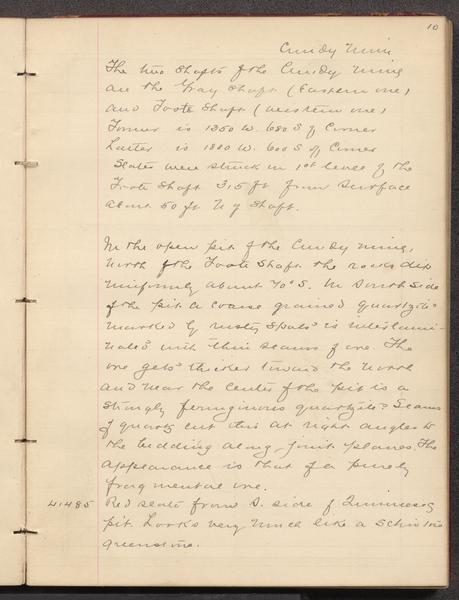 10
Cundy Mine
The two shafts of the Cundy Mine
are the Gray Shaft (Eastern one)
and Foote Shaft (western one)
Former is 1350 W. 680 S of Corner
Latter is 1800 W. 600 S of Corner
Slates were struck in 1st level of the
Foote Shaft 315 ft from surface
about 50 ft N of Shaft.
In the open pit of the Cundy Mine,
north of the Foote Shaft the rocks dip
uniformly about 70° S. In South side
of the pit a coarse grained quartzite
marked by rusty spots is interlami-
nated with thin seams of ore. The
ore gets thicker toward the north
and near the center of the pit is a
strongly ferruginous quartzite. Seams
of quartz cut this at right angles to
the bedding along joint planes. The
appearance is that of a purely
fragmental one.
41485 Red slate from S. side of Quinnesec
pit. Looks very much like a schistose
greenstone.